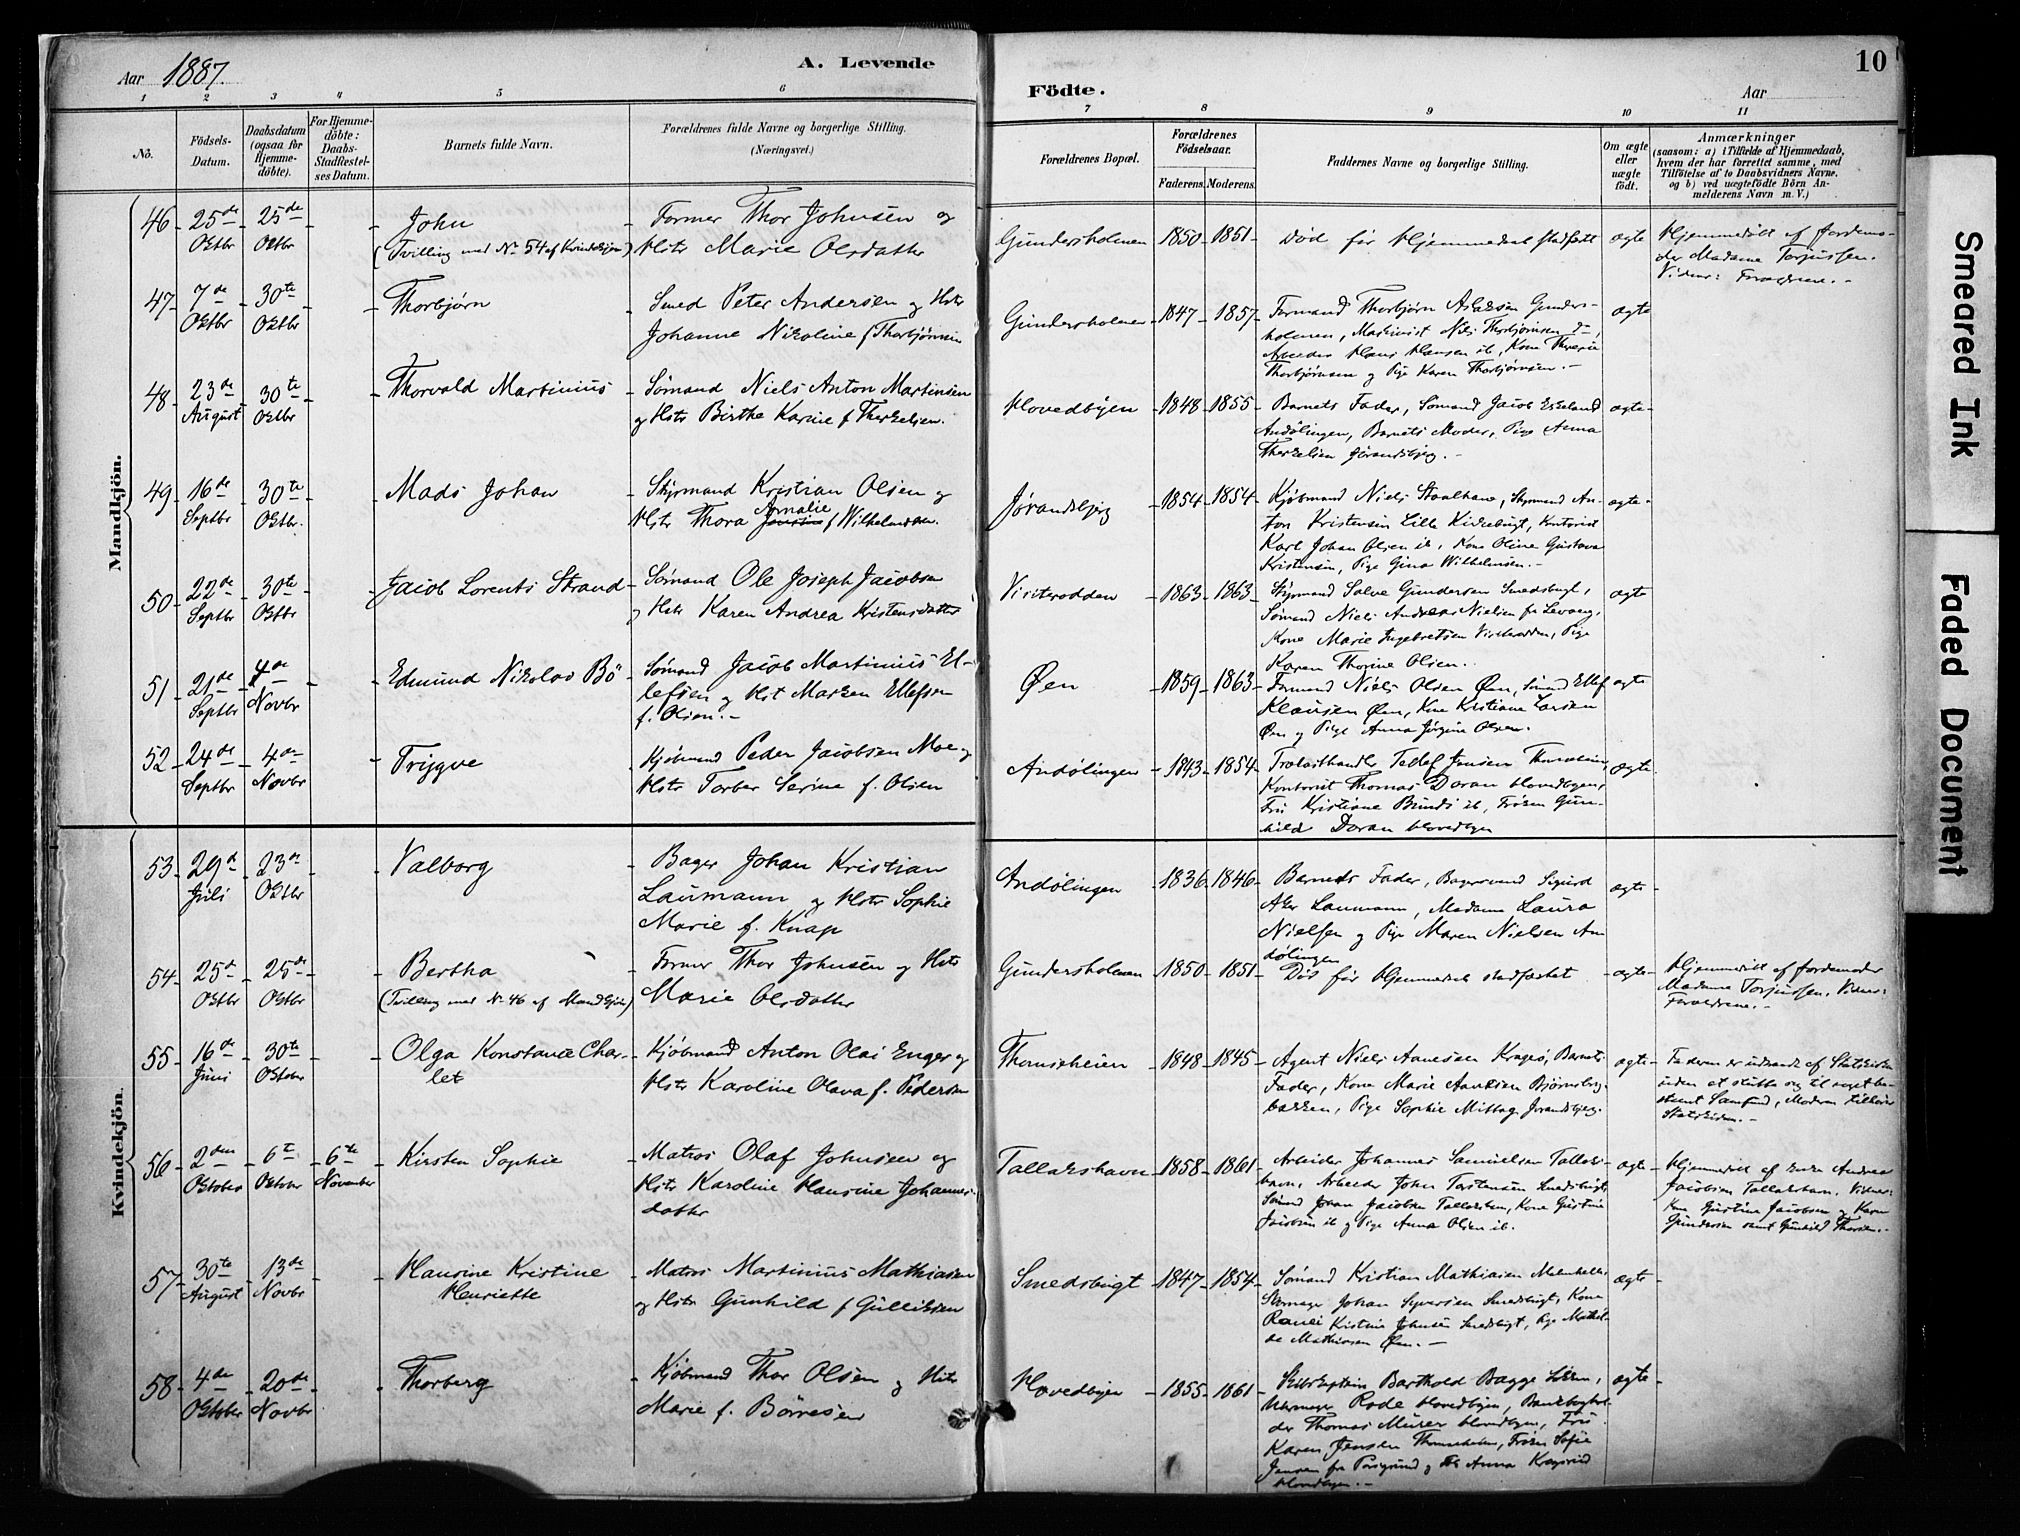 Aar 1887.
A. Levende
Födte.
Aar
10
1 2 3 4 5 6 7 8 9 10 11
No.
Födsels-
Datum.
Daabsdatum
(ogsaa for
Hjemme-
döbte).
For Hjemme-
döbte:
Daabs-
Stadfæstel-
ses Datum.
Barnets fulde Navn.
Forældrenes fulde Navne og borgerlige Stilling.
(Næringsvei.)
Forældrenes Bopæl.
Forældrenes
Födselsaar.
Faderens. Moderens.
Faddernes Navne og borgerlige Stilling.
Om ægte
eller
uægte
födt.
Anmærkninger
(saasom: a) i Tilfælde af Hjemmedaab,
hvem der har forrettet samme, med
Tilföielse af to Daabsvidners Navne.
og b) ved uægtefödte Börn An-
melderens Navn m. V.)
Mandkjön.
46 25de Oktbr 25de Oktbr John
(Tvilling med No 54 af Kvindekjøn)
Former Thor Johnsen og
Hstr Marie Olsdatter
Gundersholmen 1850 1851 Død før Hjemmedaab stadfæstet ægte
Hjemmedøbt af Jordemo-
der Madame Torjussen.
Vidner: Forældrene.
47 7de Oktbr 30te Oktbr Thorbjørn
Smed Peter Andersen og Hstr
Johanne Nikoline f Thorbjørnsen
Gundersholmen 1847 1857
Formand Thorbjørn Aslaksen Gunders-
holmen, Maskinist Niels Thorbjørnsen
Arbeider Hans Hansen ib, Kone Therese
Thorbjørnsen og Pige Karen Thorbjørnsen.
ægte
48 23de August 30te Oktbr Thorvald Martinius
Sømand Niels Anton Martinsen
og Hstr Birthe Karine f Therkelsen.
Hovedbyen 1848 1855
Barnets Fader, Sømand Jacob Eskeland
Andølingen, Barnets Moder, Pige Anna
Therkelsen Jørandsbjerg.
ægte
49 16de Septbr 30te Oktbr. Mads Johan
Styrmand Kristian Olsen og
Hstr Thora Amalie f Wilhelmsen.
Jørandsbjerg 1854 1854
Kjøbmand Niels Staalhane, Styrmand An-
ton Kristensen Lille Kirkebugt, Kontorist
Karl Johan Olsen ib, Kone Oline Gustava
Kristensen, Pige Gina Wilhelmsen.
ægte
50 22de Septbr 30te Oktbr Jacob Lorents Strand
Sømand Ole Joseph Jacobsen
og Hstr Karen Andrea Kristensdatter
Visiterodden 1863 1863
Styrmand Salve Gundersen Smedsbugt,
Sømand Niels Andreas Nielsen fr Levang,
Kone Marie Ingebretsen Visiterodden, Pige
Karen Thorine Olsen.
ægte
51 21de Septbr 4de Novbr Edmund Nikolai Bö
Sømand Jacob Martinius El-
lefsen og Hst Marken Ellefsen
f. Olsen.
Øen 1859 1863
Formand Niels Olsen Øen, Sømand Ellef
Klausen Øen, Kone Kristiane Larsen
Øen og Pige Anna Jørgine Olsen.
ægte
52 24de Septbr 4de Novbr Trygve
Kjøbmand Peder Jacobsen Moe og
Hstr Torber Serine f. Olsen
Andølingen 1843 1854
Trælasthandler Tellef Jensen
Kontorist Thomas Doran Hovedbyen,
Fru Kristiane Bruus ib, Frøken Gun-
hild Doran Hovedbyen
ægte.
Kvindekjön.
53 29d Juli 23de Oktbr Valborg
Bager Johan Kristian
Laumann og Hstr Sophie
Marie f. Knap
Andølingen 1836 1846
Barnets Fader, Bagersvend Sigurd
Aker Laumann, Madame Laura
Nielsen og Pige Maren Nielsen An
dølingen
ægte
54 25d Oktbr 25de Oktbr Bertha
(Tvilling med No 46 af Mandkjøn)
Former Thor Johnsen og Hstr
Marie Olsdatter
Gundersholmen 1850 1851 Død før Hjemmedaab stadfæstet ægte
Hjemmedøbt af Jordemoder
Madame Torjussen. Vidner:
Forældrene.
55 16de Juni 30te Oktober Olga Konstance Char-
let
Kjøbmand Anton Olai Enger og
Hstr Karoline Olava f. Pedersen
Thomseheien 1848 1845
Agent Niels Aanesen Kragerø, Barnets
Fader, Kone Marie Aanesen Bjørnsborg-
bakken, Pige Sophie Mittag Jørandsbjerg.
ægte
Faderen er udtraadt af Statskirken
uden at slutte sig til noget be-
stemt Samfund, Moderen tilhører
Statskirken.
56 2den Oktober 6te Oktober 6te November Kirsten Sophie
Matros Olaf Johnsen og
Hstr Karoline Hansine Johannes-
datter
Tallakshavn 1858 1861
Arbeider Johannes Samuelsen Tallaks-
havn, Arbeider John Torstensen Smedsbugt,
Sømand Johan Jacobsen Tallakshavn, Kone Gustine
Jacobsen ib og Pige Anna Olsen ib.
ægte
Hjemmedøbt af Enke Andrea
Jacobsen Tallakshavn. Vidner:
Kone Gustine Jacobsen og Karen
Gundersen samt Gunhild Thorsen.
57 30te August 13de Novbr Hansine Kristine
Henriette
Matros Martinius Mathiasen
og Hstr Gunhild f Gulliksen
Smedsbugt 1847 1854
Sømand Kristian Mathiasen
Skomager Johan Syversen Smedsbugt, Kone
Kristine Johnsen Smedsbugt, Pige Mathil-
de Mathiasen Øen.
ægte
58 4de Oktober 20de Novbr Thorberg
Kjøbmand Thor Olsen og Hstr
Marie f. Børresen
Hovedbyen 1855 1861
Skibskaptein Barthold Bagge
Uhrmager Rode Hovedbyen, Bankboghol-
der Thomas Hovedbyen, Fru
Karen Jensen Thomseheien, Frøken Sofie
Jensen fra Porsgrund og Anna
Hovedbyen.
ægte
Smeared Ink
Faded Document